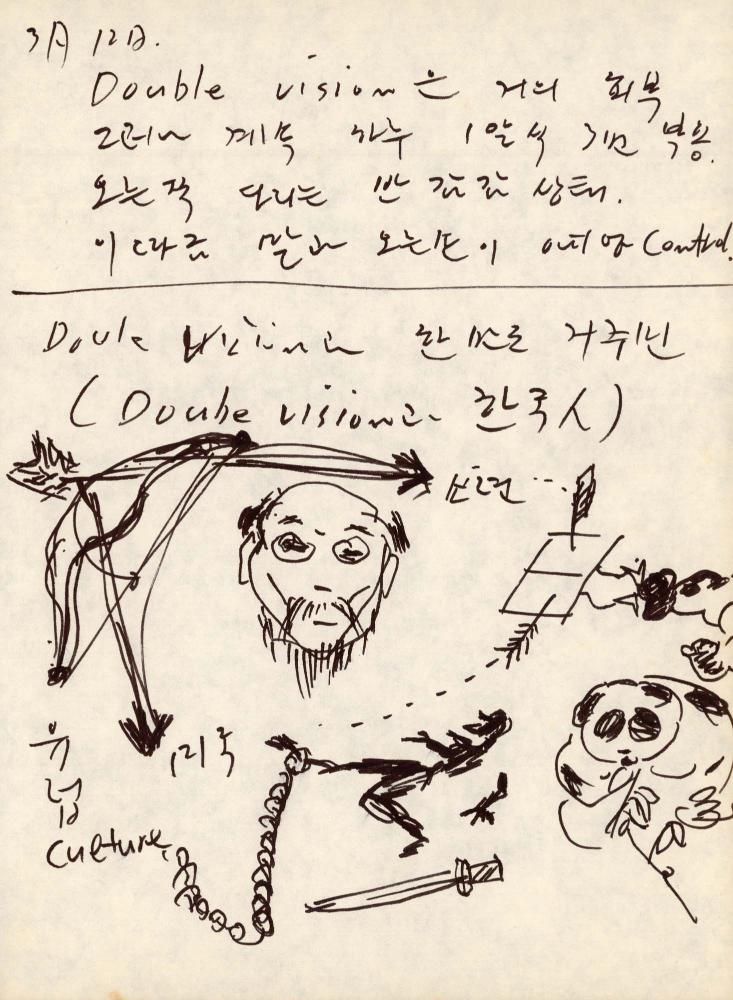 3月 12日.
Double vision은 거의 회복
그러나 계속 하루 1알씩 3번 복용.
오른쪽 다리는 반 감각 상태.
이따금 말과 오른손이 control.
Doule vision과 한 으로 거주인
(Double vision과 한국人)
미국
유럽
culture